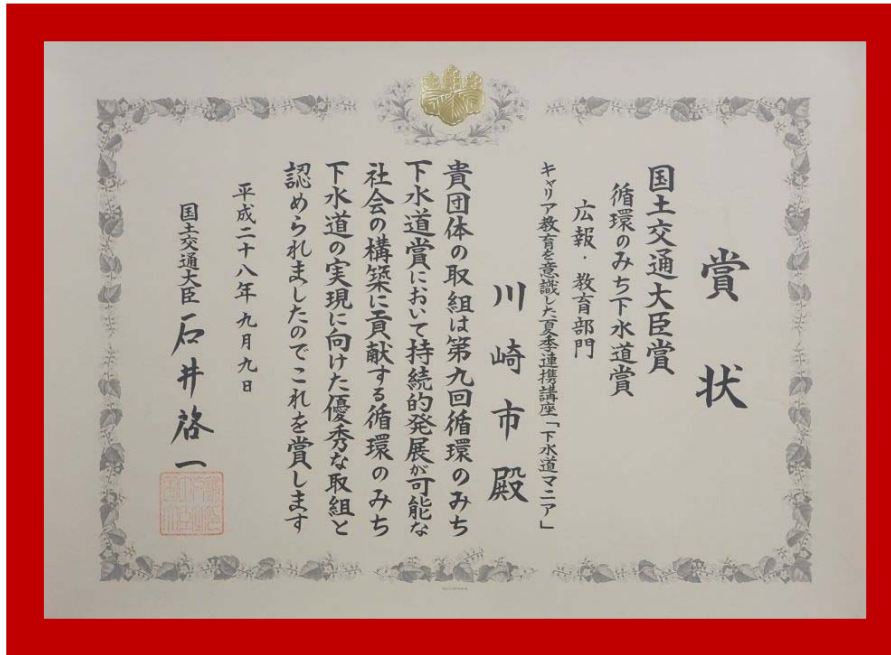 賞状
国土交通大臣賞
循環のみち下水道賞
広報・教育部門
キャリア教育を意識した夏季連携講座「下水道マニア」
川崎市殿
貴団体の取組は第九回循環のみち
下水道賞において持続的発展が可能な
社会の構築に貢献する循環のみち
下水道の実現に向けた優秀な取組と
認められましたのでこれを賞します
平成二十八年九月九日
国土交通大臣 石井啓一